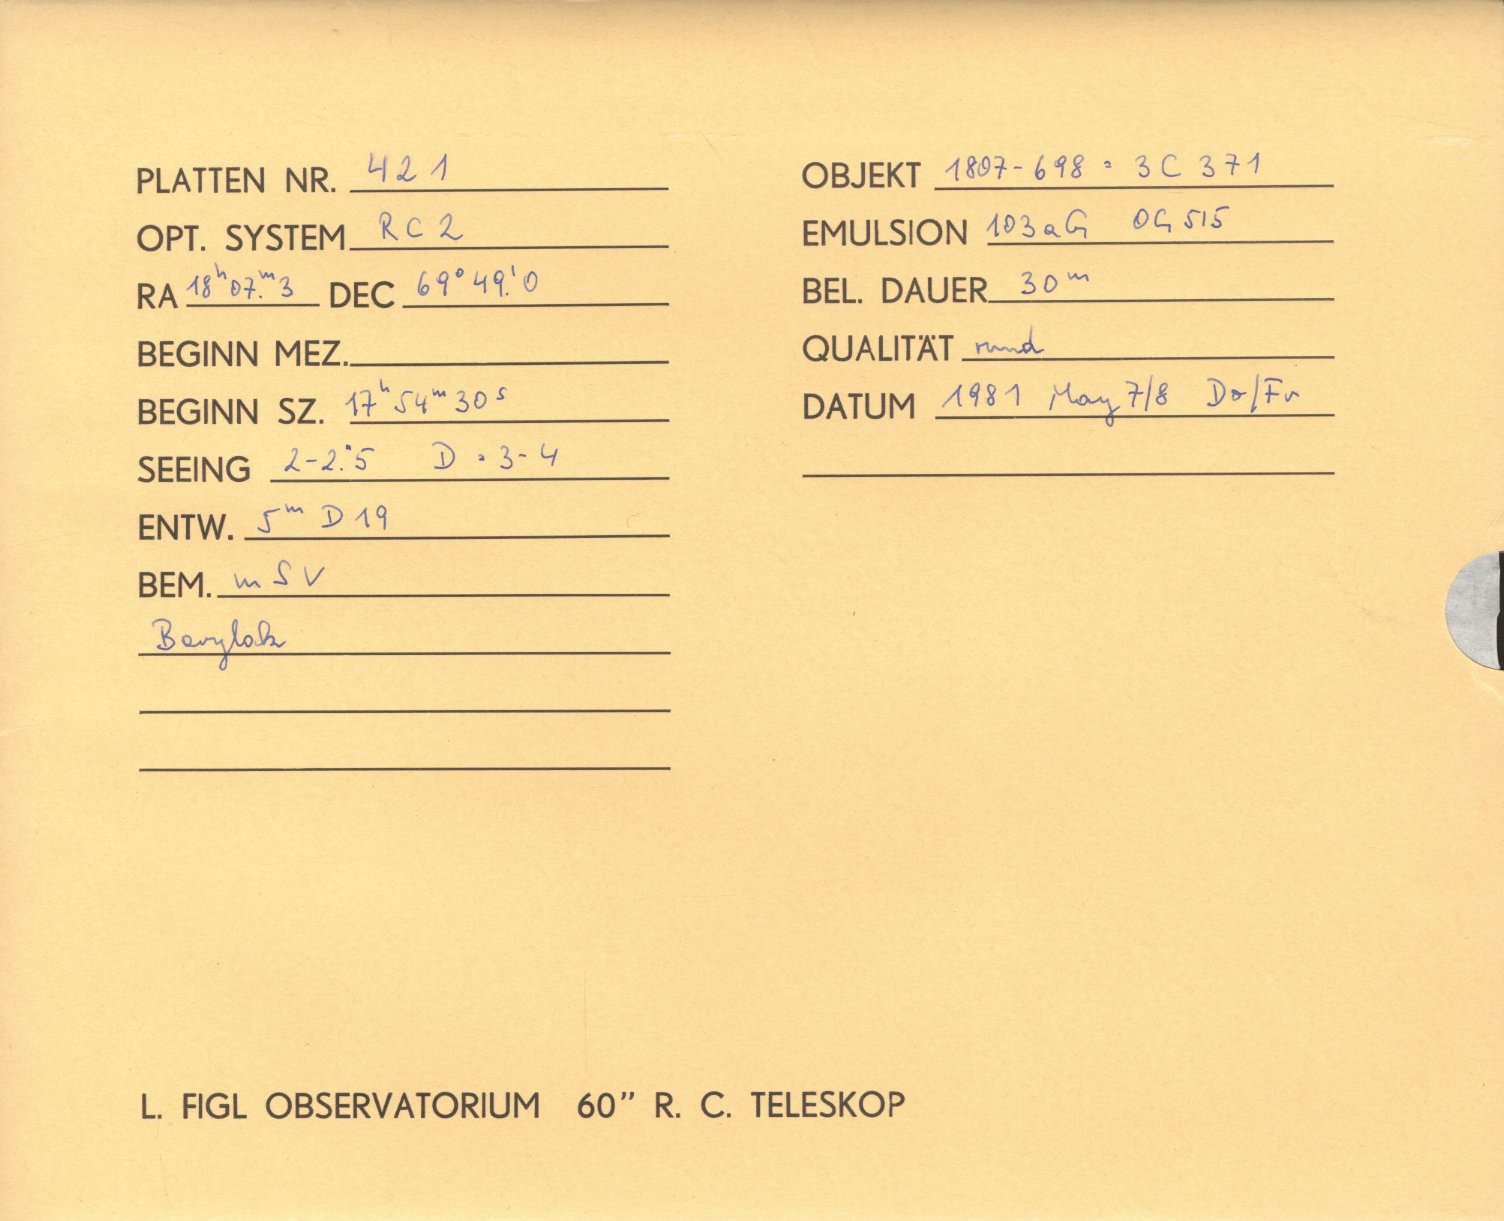 PLATTEN NR. 421
OPT. SYSTEM RC2
RA 18ʰ07.ᵐ3 DEC 69°49.'0
BEGINN MEZ.
BEGINN SZ. 17ʰ54ᵐ30ˢ
SEEING 2-2."5 D = 3-4
ENTW. 5ᵐ D19
BEM. mSV
OBJEKT 1807-698 = 3C 371
EMULSION 103aG OG515
BEL. DAUER 30ᵐ
QUALITÄT rund
DATUM 1981 May 7/8 Do/Fr
L. FIGL OBSERVATORIUM 60” R. C. TELESKOP